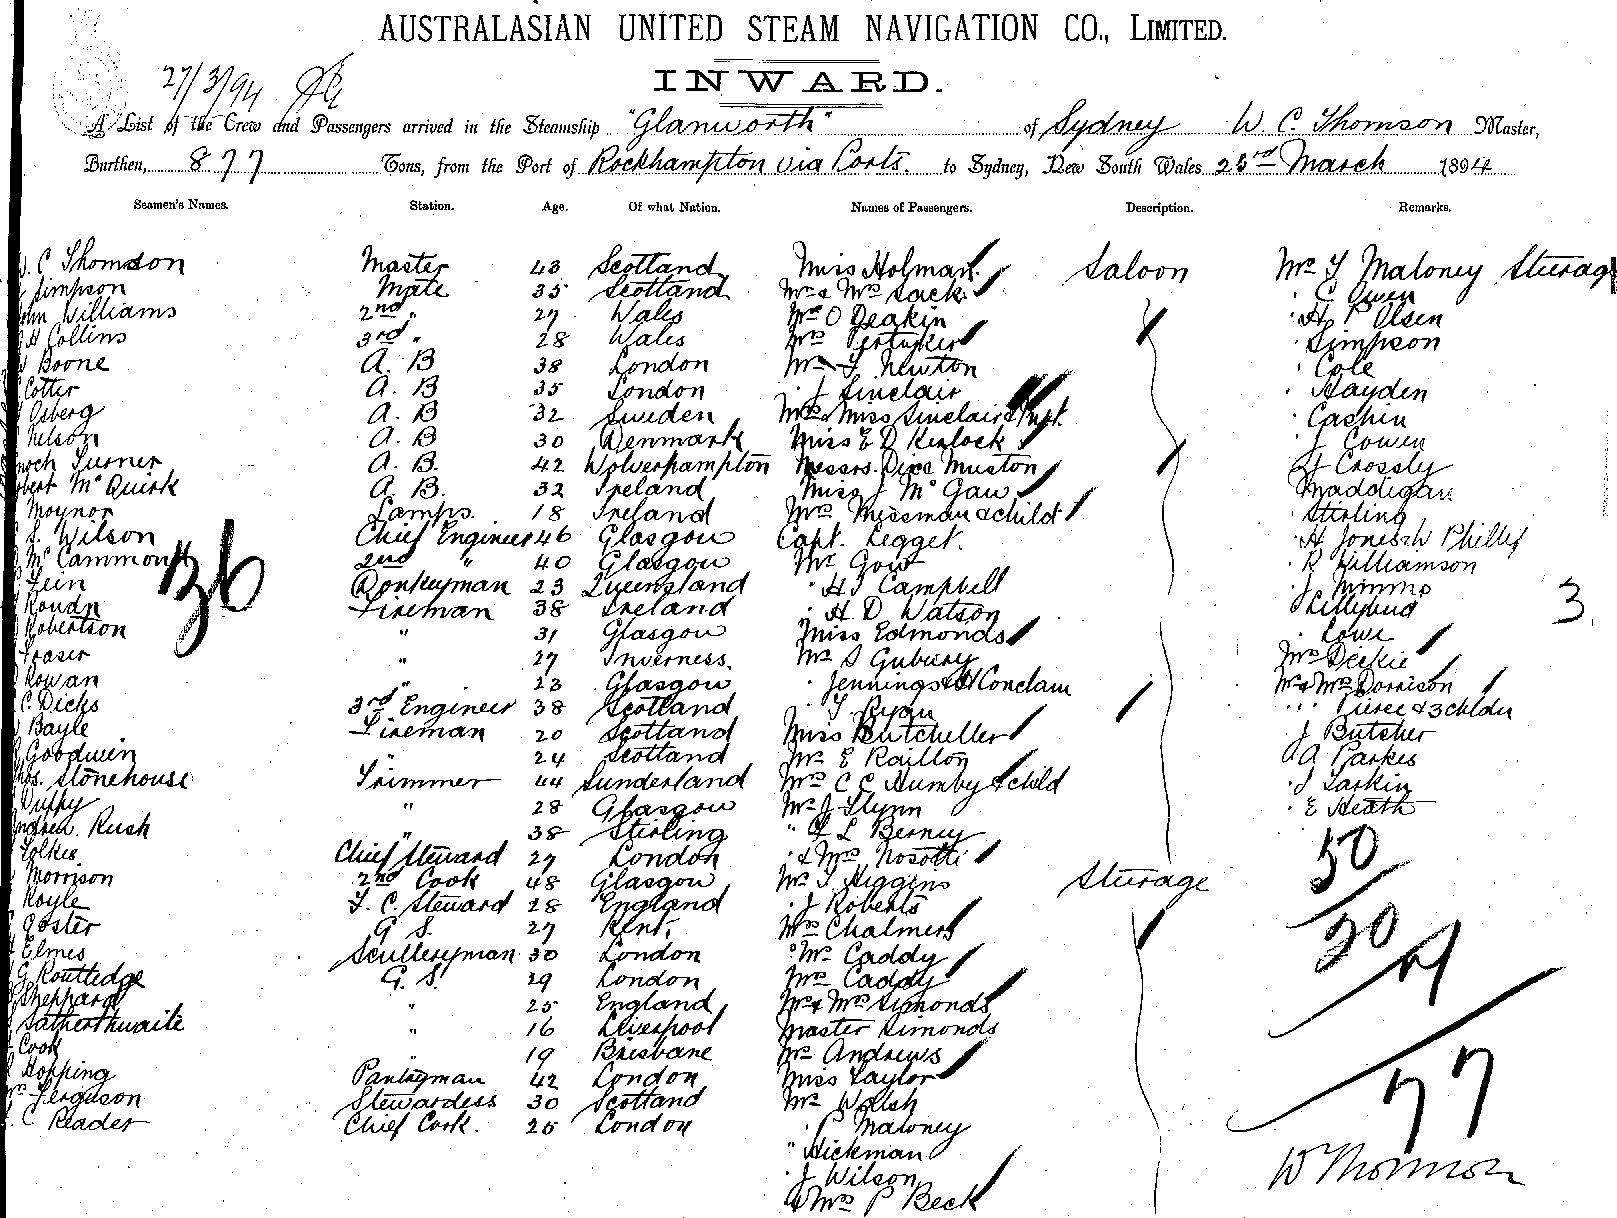 AUSTRALASIAN UNITED STEAM NAVIGATION CO., LIMITED.
INWARD.
27/3/94
A List of the Crew and Passengers arrived in the Steamship "Glanworth" of Sydney W. C. Thomson Master,
Burthen, 877 Tons, from the Port of Rockhampton via Ports. to Sydney, New South Wales 23rd March 1894
Seamen's Names. Station. Age. Of what Nation. Names of Passengers. Description. Remarks.
C Thomson Master 43 Scotland Miss Holman Saloon Mr T Maloney Sturage
Simpson Mate 35 Scotland Mr & Mrs Sack C Owen
Williams 2nd " 27 Wales Mr O Deakin H P Olsen
H Collins 3rd " 28 Wales Mrs Simpson
Boone A. B 38 London Mr Newton Cole
Cotter A. B 35 London J Sinclair Hayden
Osberg A. B 32 Sweden Mrs & Miss Sinclair & Inft. Cashin
Nelson A. B 30 Denmark Miss E D Kinlock J Cowen
Turner A. B. 42 Wolverhampton Messrs. Dixe Muston Crossly
McQuirk A. B. 32 Ireland Miss J McGaw Maddigan
Moynor Lamps. 18 Ireland Mrs Messman & child Stirling
S. Wilson Chief Engineer 46 Glasgow Capt. Legget. H Jones W Phillip
McCammont 2nd " 40 Glasgow Mr Gow R Williamson
Fein Donkeyman 23 Queensland " H J Campbell J Nimmo
Fireman 38 Ireland " H. D. Watson Lillybud
Robertson " 31 Glasgow Miss Edmonds Lowe
Fraser " 27 Inverness. Mr S Mrs Deekie
Rowan " 23 Glasgow Jennings & Mr & Mrs Dornison
C Dicks 3rd Engineer 38 Scotland T Ryan Pierce & 3 childn
Bayle Fireman 20 Scotland Miss Butcheller J Butcher
Goodwin " 24 Scotland Mr E Raillon A Parkes
Stonehouse Trimmer 44 Sunderland Mrs C C Humby & child J Larkin
Duffy " 28 Glasgow Mr J Flynn E Heath
Rusk " 38 Stirling " L Berney
Folkes Chief Steward 27 London " & Mrs Nosotti
Morrison 2nd Cook 48 Glasgow Mr T Higgins Sturage
Royle F. C. Steward 28 England J Roberts
G. S. 27 Kent. Mrs Chalmers
Elmes Sculleryman 30 London " Mr Caddy
G Routledge G. S. 29 London Mrs Caddy
Sheppard " 25 England Mr & Mrs Simonds
Satherthwaite " 16 Liverpool Master Simonds
Cook " 19 Brisbane Mr Andrews
Hopping Pantryman 42 London Miss Taylor
Ferguson Stewardess 30 Scotland Mr Walsh
C Reader Chief Cook. 25 London " P Maloney
" Hickman
" J Wilson
& Mrs P Beck
36
3
50
77